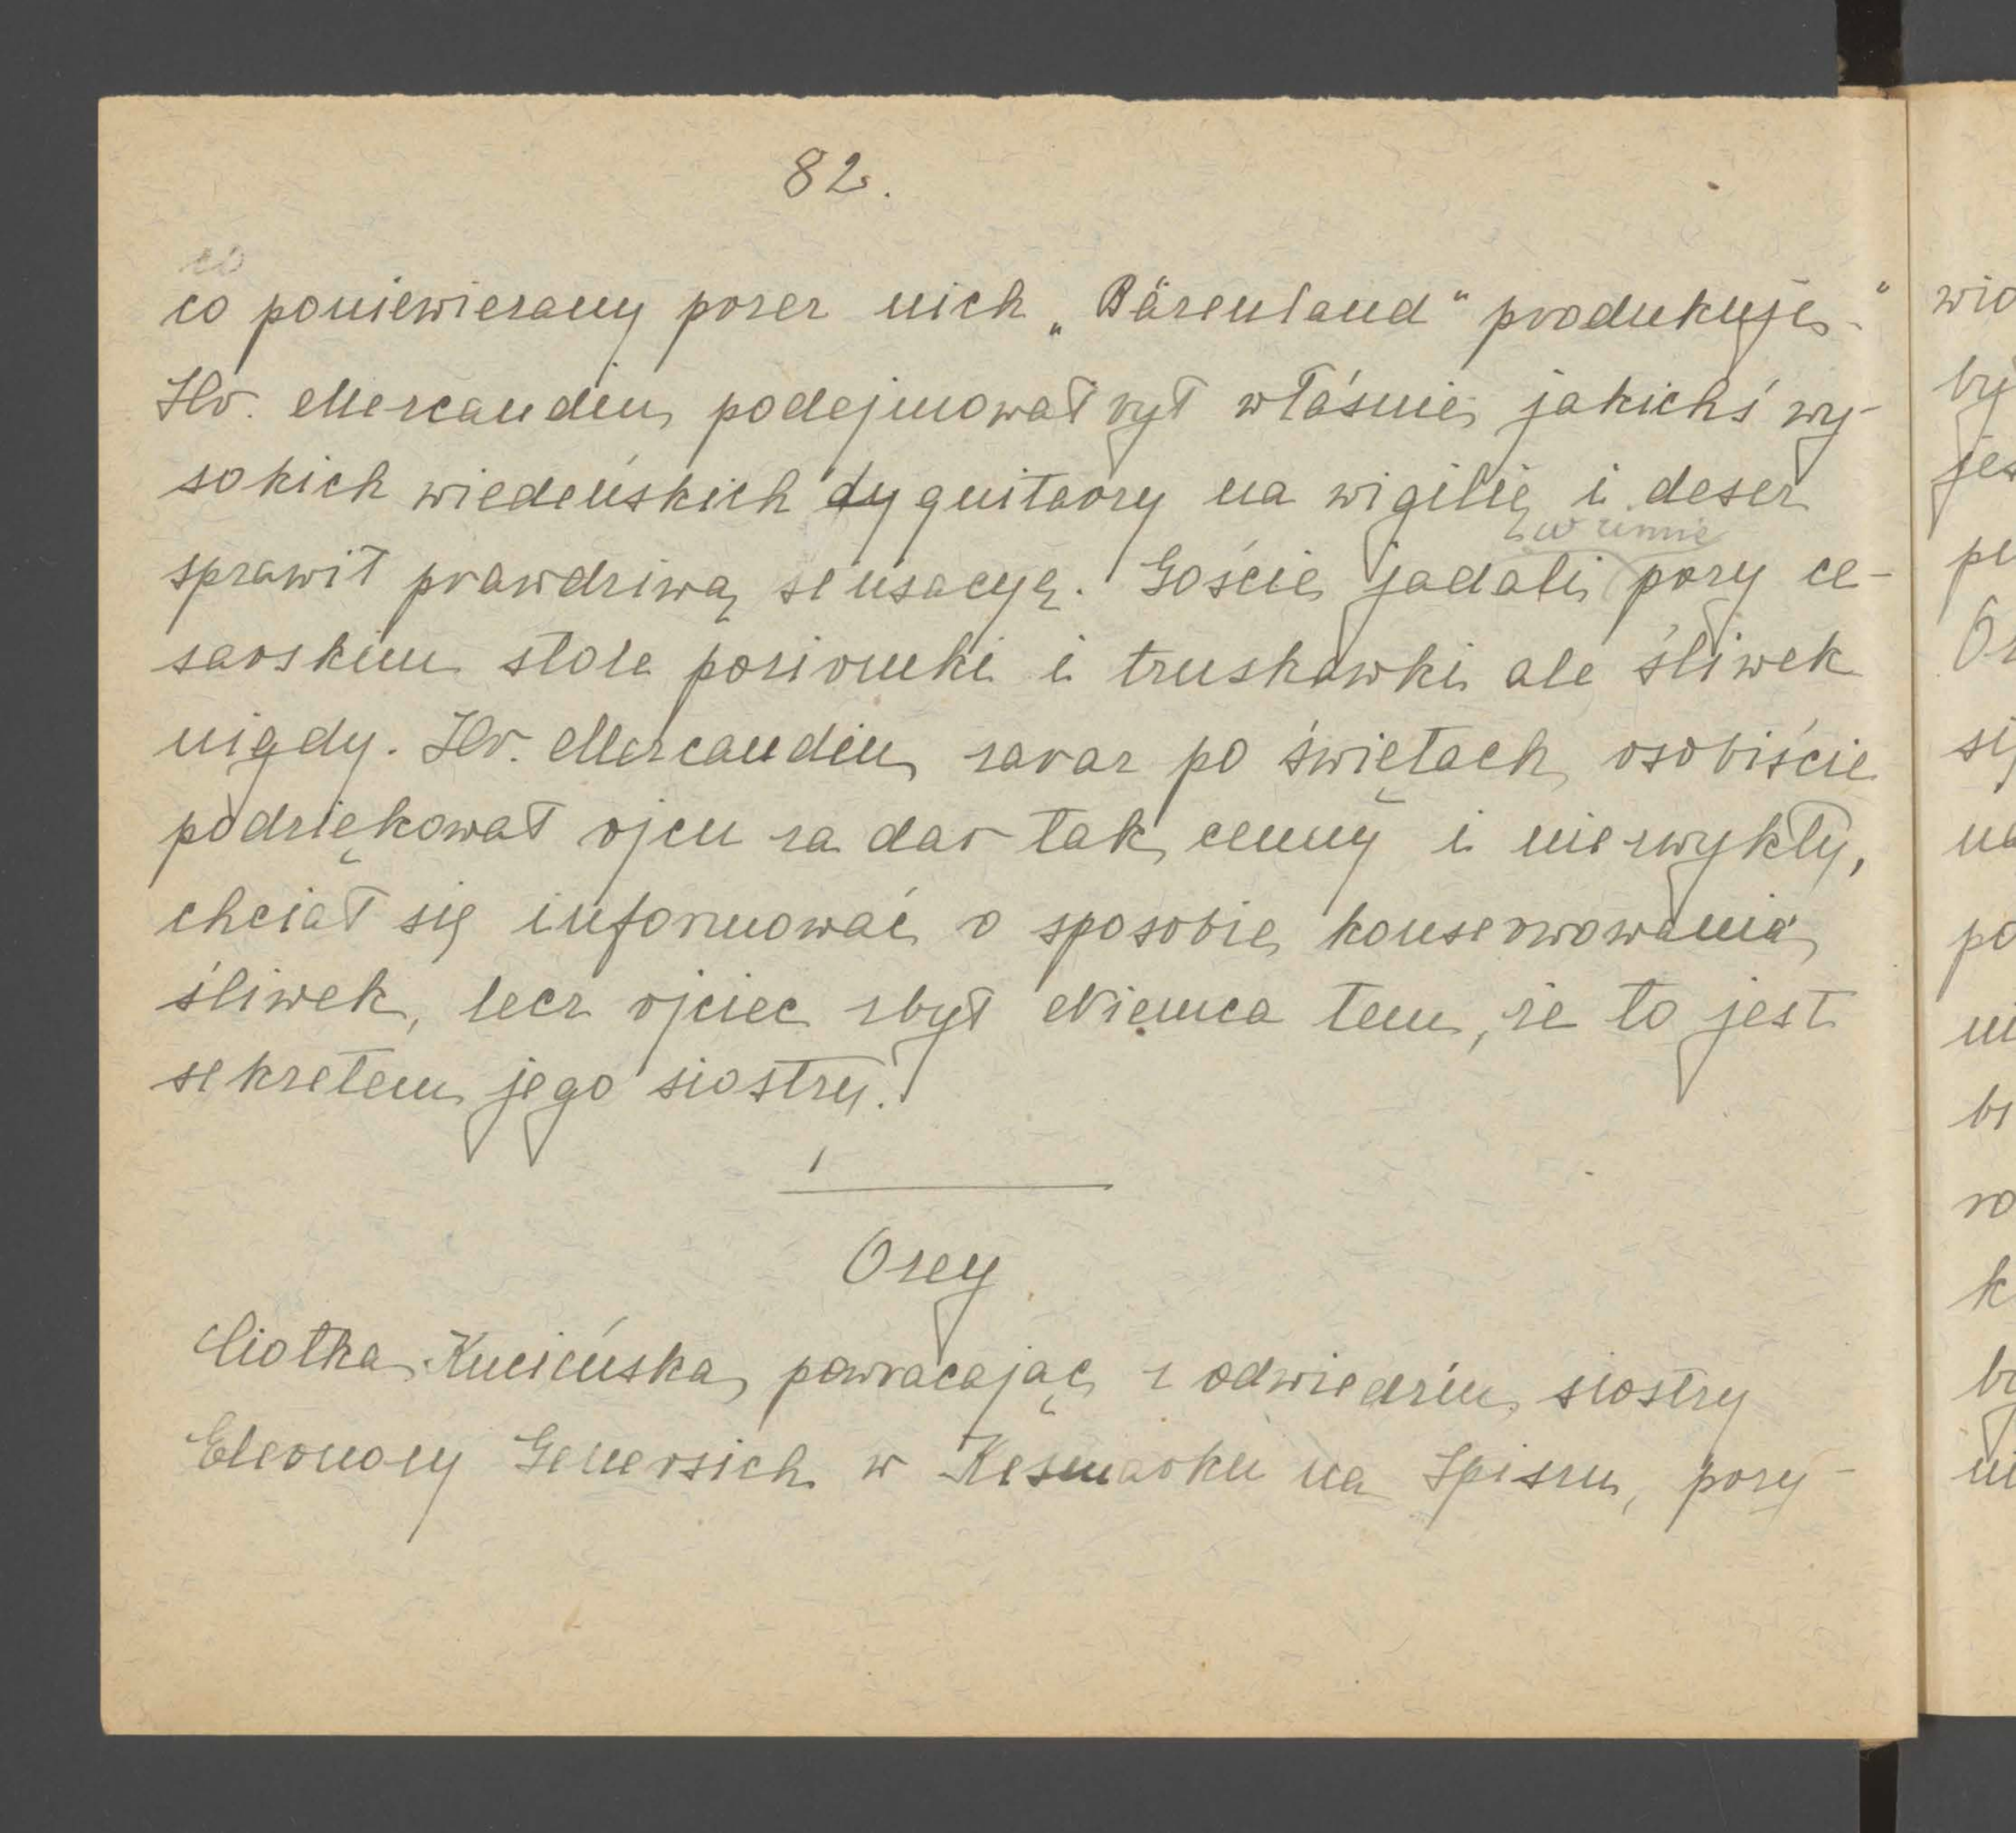 82.
co
co poniewierany przez nich „Bärenland“ produkuje.“
Hr. Mercandin podejmował był właśnie jakichś wy-
sokich wiedeńskich dygnitarzy na wigilię i deser
w zimie
sprawił prawdziwą sensacyę. Goście jadali przy ce-
sarskim stole poziomki i truskawki ale śliwek
nigdy. Hr. Mercandin zaraz po świętach osobiście
podziękował ojcu za dar tak cenny i niezwykły,
chciał się informować o sposobie konserwowania
śliwek, lecz ojciec zbył Niemca tem, że to jest
sekretem jego siostry.
Ozey
Ciotka Kucieńska, powracając z odwiedzin siostry
Eleonory Genersich w Kesmarku na Spiszu, przy-
wid
by
jes
pe
si
na
po
k
by